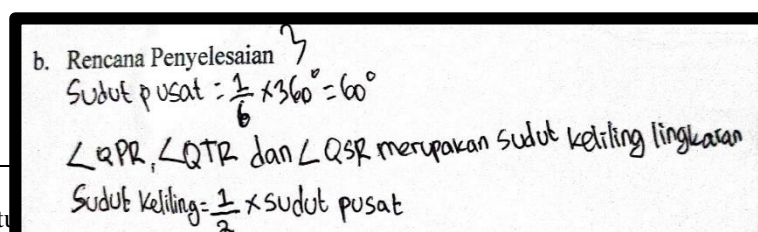 b. Rencana Penyelesaian 3
Sudut pusat = 1/6 × 360° = 60°
∠QPR, ∠QTR dan ∠QSR merupakan sudut keliling lingkaran
Sudut keliling = 1/2 × sudut pusat